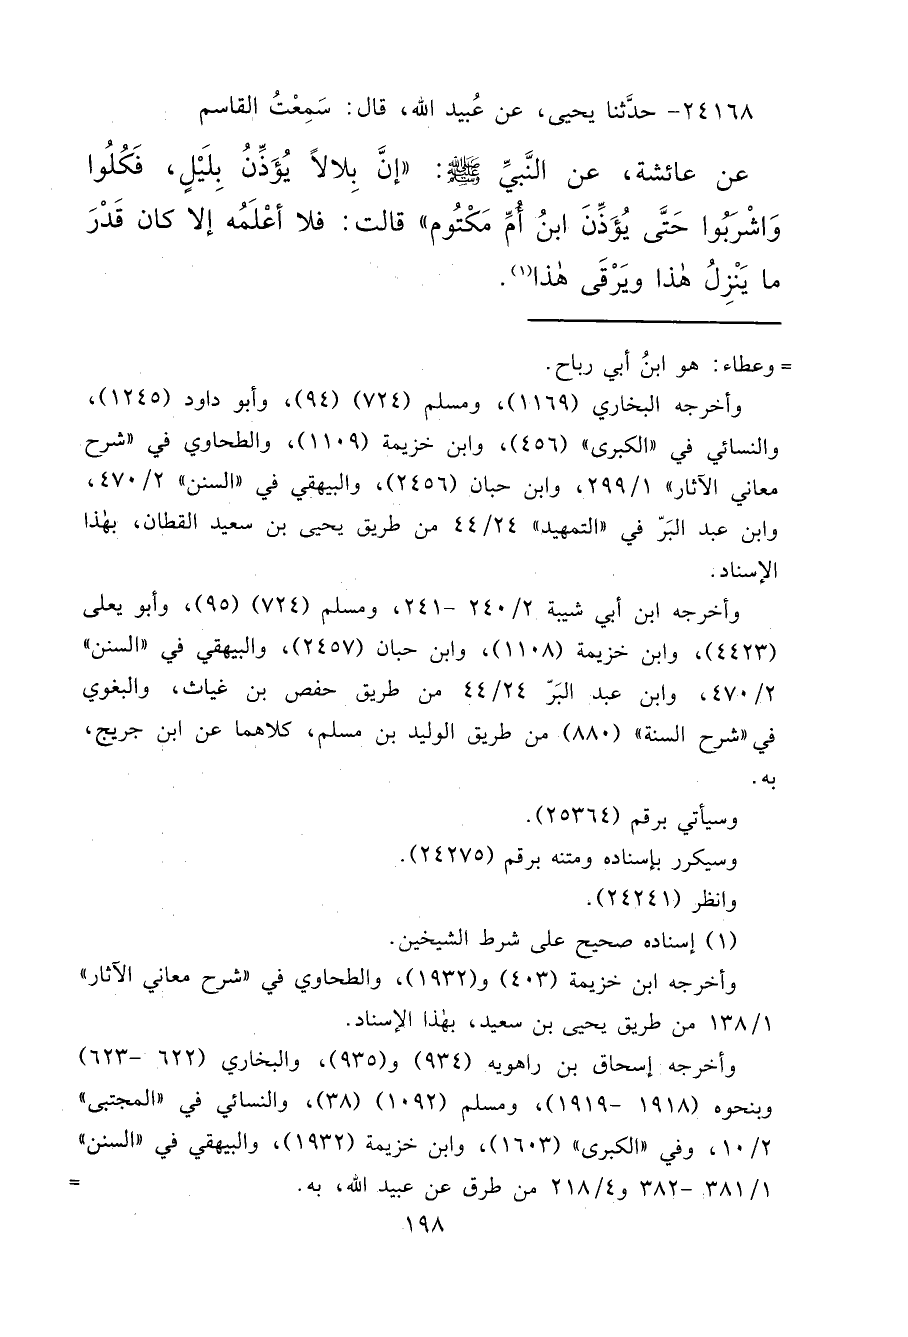 ٢٤١٦٨- حدَّثنا يحيى، عن عُبيد الله، قال: سَمِعْتُ القاسم
عن عائشة، عن النَّبيِّ ﷺ: «إنَّ بِلالاً يُؤَذِّنُ بِلَيْلٍ، فَكُلُوا
وَاشْرَبُوا حَتَّى يُؤَذِّنَ ابنُ أُمِّ مَكْتُوم» قالت: فلا أعْلَمُه إلا كان قَدْرَ
ما يَنْزِلُ هٰذا ويَرْقَى هٰذا(١).
= وعطاء: هو ابنُ أبي رباح.
وأخرجه البخاري (١١٦٩)، ومسلم (٧٢٤) (٩٤)، وأبو داود (١٢٤٥)،
والنسائي في «الكبرى» (٤٥٦)، وابن خزيمة (١١٠٩)، والطحاوي في «شرح
معاني الآثار» ٢٩٩/١، وابن حبان (٢٤٥٦)، والبيهقي في «السنن» ٤٧٠/٢،
وابن عبد البَرّ في «التمهيد» ٤٤/٢٤ من طريق يحيى بن سعيد القطان، بهٰذا
الإسناد.
وأخرجه ابن أبي شيبة ٢٤٠/٢ -٢٤١، ومسلم (٧٢٤) (٩٥)، وأبو يعلى
(٤٤٢٣)، وابن خزيمة (١١٠٨)، وابن حبان (٢٤٥٧)، والبيهقي في «السنن»
٤٧٠/٢، وابن عبد البَرّ ٤٤/٢٤ من طريق حفص بن غياث، والبغوي
في «شرح السنة» (٨٨٠) من طريق الوليد بن مسلم، كلاهما عن ابن جريج،
به.
وسيأتي برقم (٢٥٣٦٤).
وسيكرر بإسناده ومتنه برقم (٢٤٢٧٥).
وانظر (٢٤٢٤١).
(١) إسناده صحيح على شرط الشيخين.
وأخرجه ابن خزيمة (٤٠٣) و(١٩٣٢)، والطحاوي في «شرح معاني الآثار»
١٣٨/١ من طريق يحيى بن سعيد، بهٰذا الإسناد.
وأخرجه إسحاق بن راهويه (٩٣٤) و(٩٣٥)، والبخاري (٦٢٢ -٦٢٣)
وبنحوه (١٩١٨ -١٩١٩)، ومسلم (١٠٩٢) (٣٨)، والنسائي في «المجتبى»
١٠/٢، وفي «الكبرى» (١٦٠٣)، وابن خزيمة (١٩٣٢)، والبيهقي في «السنن»
٣٨١/١ -٣٨٢ و٢١٨/٤ من طرق عن عبيد الله، به. =
١٩٨